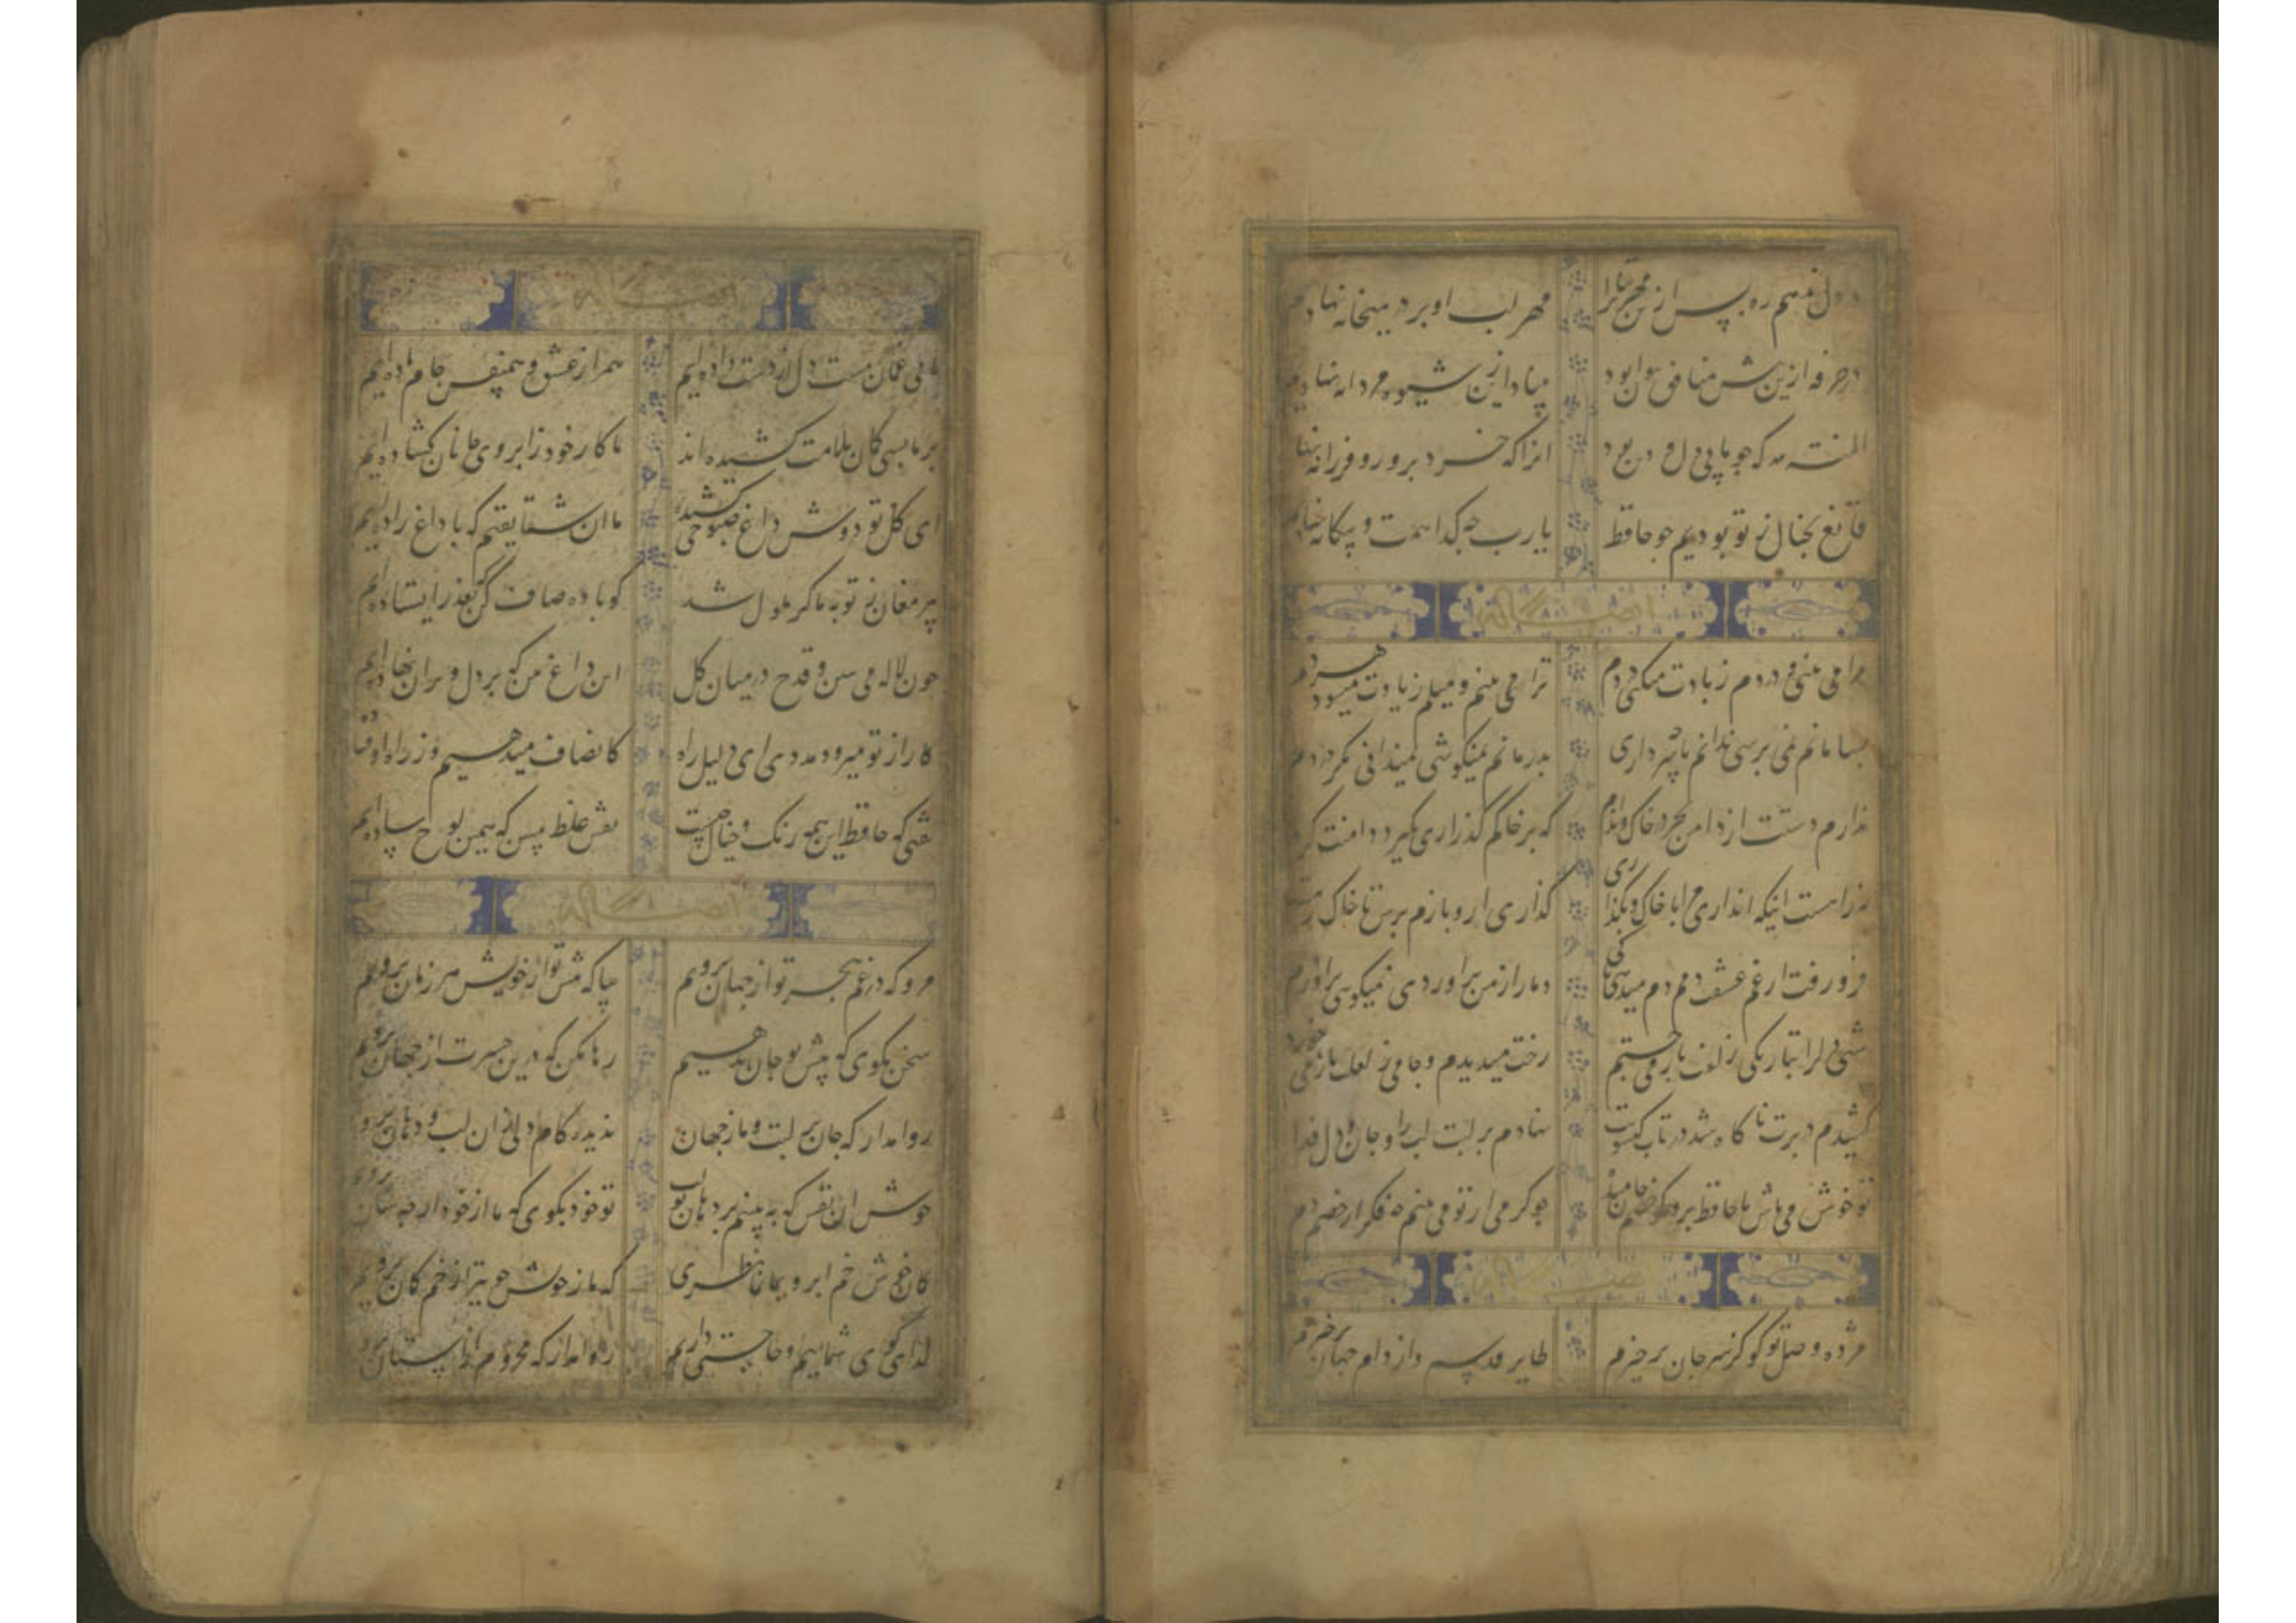 در دل ندهم ره پس ازین مهر بتان را مهر لب او بر در میخانه نهادیم
در خرقه ازین بیش منافق نتوان بود بنیاد ازین شیوه مردانه نهادیم
المنة لله که چو ما بی دل و دین بود انرا که خرد پرور و فرزانه نهادیم
قانع بخیال ز تو بودیم چو حافظ یا رب چه گدا همت و بیگانه نهادیم
ایضاً له
مرا می بینی و دردم زیادت میکنی دردم ترا می بینم و میلم زیادت میشود هر دم
بسامانم نمی پرسی ندانم با چه سر داری بدرمانم نمیکوشی نمیدانی مگر دردم
ندارم دستت از دامن بجز در خاک و اندم که بر خاکم گذار اری بگیرد دامنت گردم
نه راهست اینکه اندازی مرا با خاک و بگذاری گذاری ار و بازم پرس تا خاک رهت
فرو رفت از غم عشقت دمم دم میدهی تا کی دمار از من براوردی نمیکویی براوردم
شبی دل را بتاریکی ز زلفت باز می جستم رخت میدیدم و جامی ز لعلت باز می خوردم
کشیدم در برت ناگاه و شد در تاب گیسویت نهادم بر لبت لب را و جان و دل فدا
تو خوش می باش با حافظ برو گو خصم جان میده چو گرمی از تو می بینم چه فکر از خصم دم
ایضاً له
مژده وصل تو کو کز سر جان برخیزم طایر قدسم و از دام جهان برخیزم
ایضاً له
ما بی غمان مست دل از دست داده ایم همراز عشق و همنفس جام باده ایم
بر ما بسی کمان ملامت کشیده اند تا کار خود ز ابروی جانان کشاده ایم
ای کل تو دوش داغ صبوحی کشیده ما ان شقایقیم که با داغ زاده ایم
پیر مغان ز توبه ما کر ملول شد کو باده صاف کن بعذر ایستاده ایم
چون لاله می مبین و قدح در میان کل این داغ من که بر دل و بران نهاده ایم
کار از تو میرود مددی ای دلیل راه کانصاف میدهیم و ز راه اوفتاده
گفتی که حافظ این همه رنگ و خیال چیست نقش غلط مبین که همین لوح ساده ایم
ایضاً له
مرو که در غم هجر تو از جهان برویم بیا که پیش تو از خویش هر زمان برویم
سخن بکوی که پیش تو جان بدهیم رها مکن که درین حسرت از جهان برویم
روا مدار که جان بر لبت و ما ز جهان ندیده کام دل از ان لب و دهان برو
خوش ان نفس که به بینم بر دهان تو تو خود بکوی که ما از خود ار چه سان برویم
کمان خوش خم ابرو بما نما نظری که ما ز خویش چو تیر از خم کمان برویم
گدای کوی شماییم و حاجتی داریم روا مدار که محروم ازاستان برو